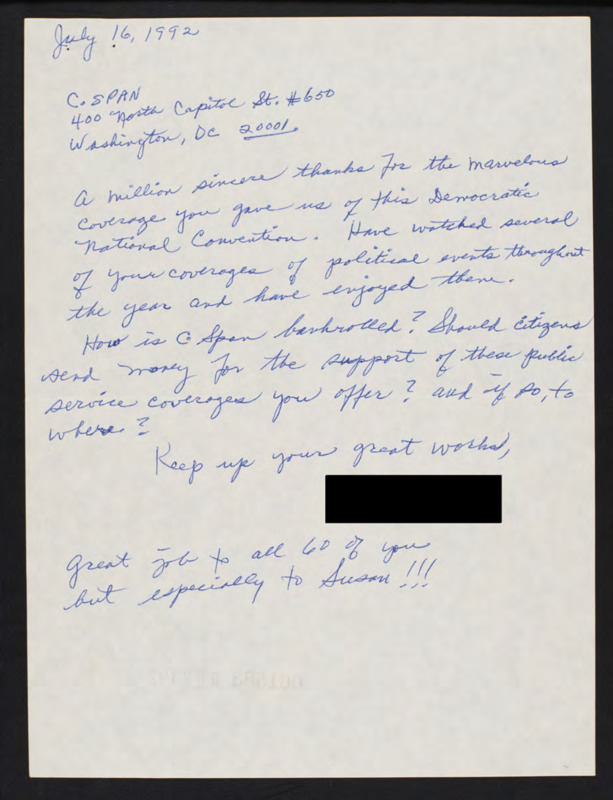 July 16, 1992
C. SPAN
400 North Capitol St. #650
Washington, DC 20001.
A million sincere thanks for the marvelous
coverage you gave us of this Democratic
National Convention. Have watched several
of your coverages of political events throughout
the year and have enjoyed them.
How is C Span bankrolled? Should citizens
send money for the support of these public
service coverages you offer? and if so, to
where?
Keep up your great works,
Great job to all 60 of you
but especially to Susan!!!